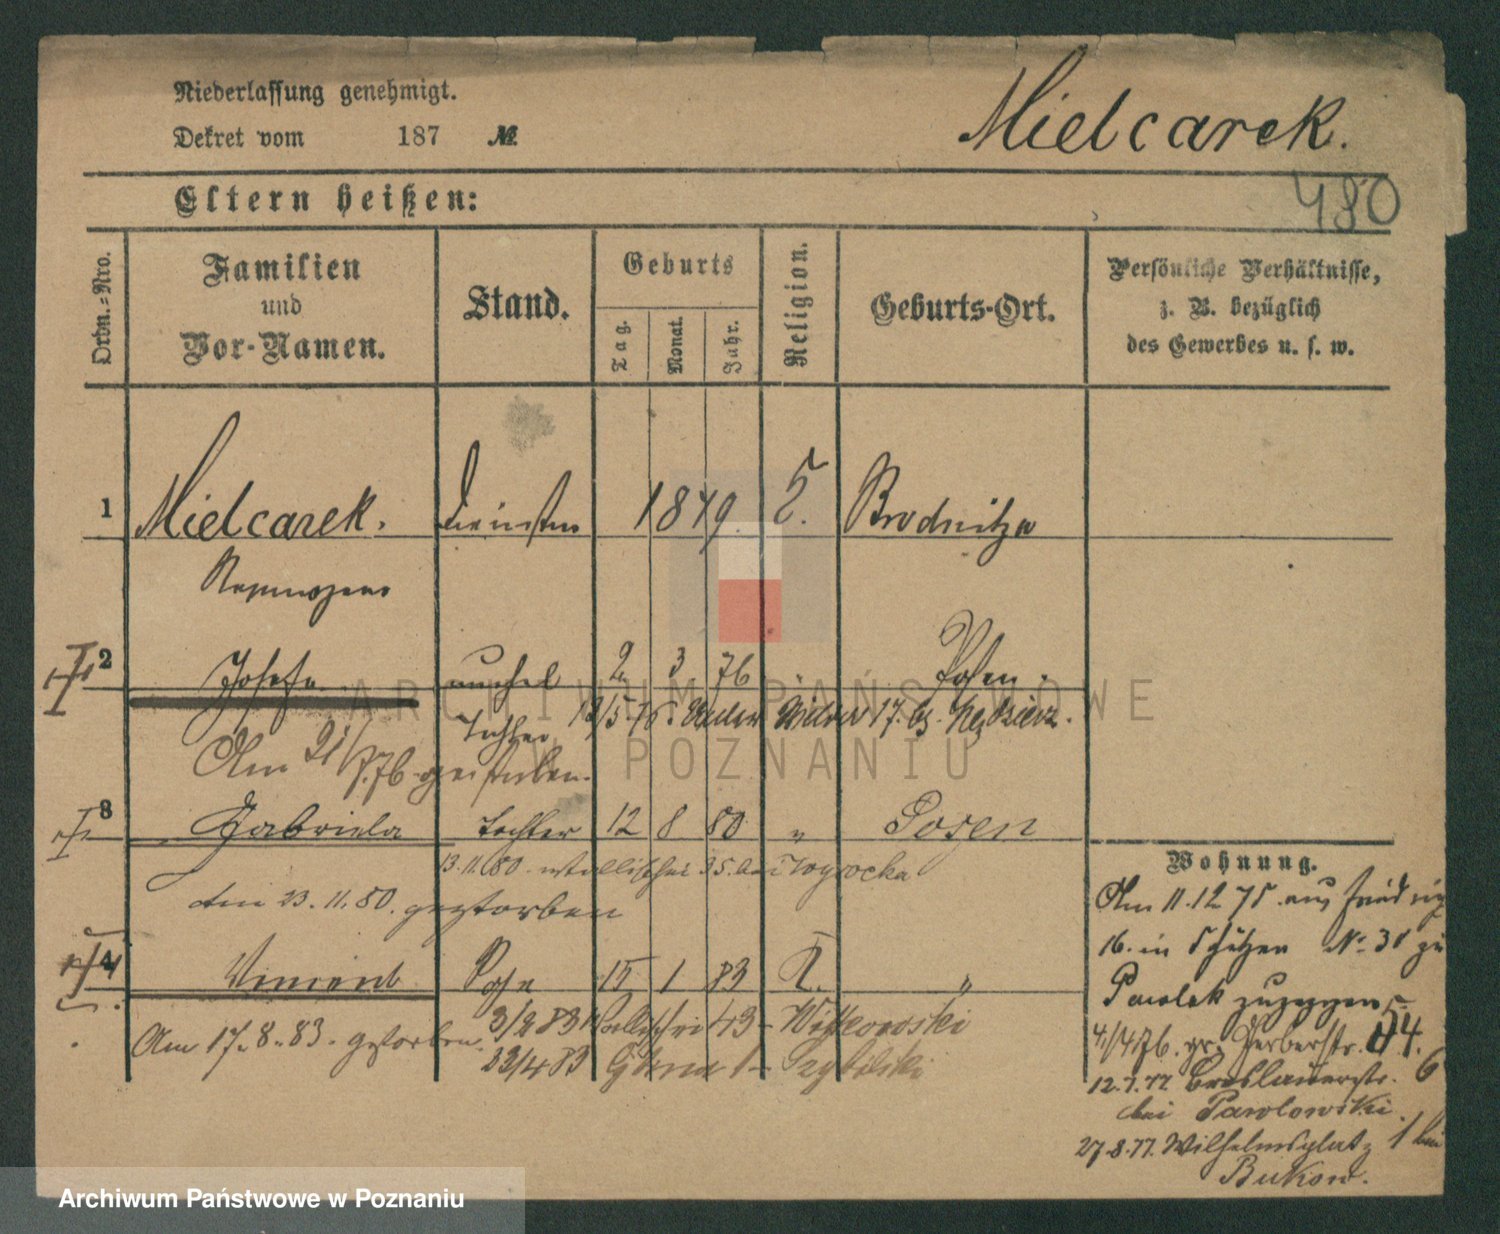 Niederlassung genehmigt.
Dekret vom 187 №
Mielcarek.
480
Eltern heißen:
Ordn.-Nro.
Familien und Vor-Namen.
Stand.
Geburts
Tag.
Monat.
Jahr.
Religion.
Geburts-Ort.
Persönliche Verhältnisse,
z. B. bezüglich
des Gewerbes u. s. w.
1 Mielcarek. 1849 Brodnitza
2 Josefa unehel 2 3 76 Posen.
Tochter 13/5.76. 17. bei
Am 21/7.76 gestorben.
3 Gabriela Tochter 12 8 80 " Posen
13.11.80. 35. bei
Am 23.11.80. gestorben
4 Vincent Sohn 15 1 83 K. "
Am 17.8.83. gestorben. 3/2 83 43 Witkowski
23/4 83 1 Przybilski
Wohnung.
Am 11.12 75 aus
16. in Schützen No 31 zu
Pawlak zugezogen
4/4 76. gr. Gerberstr. 54.
12.7.77 Breslauerstr. 6
bei Pawlowski.
27.8.77. Wilhelmsplatz 1 bei
Bukow.
ARCHIWUM PAŃSTWOWE
W POZNANIU
Archiwum Państwowe w Poznaniu